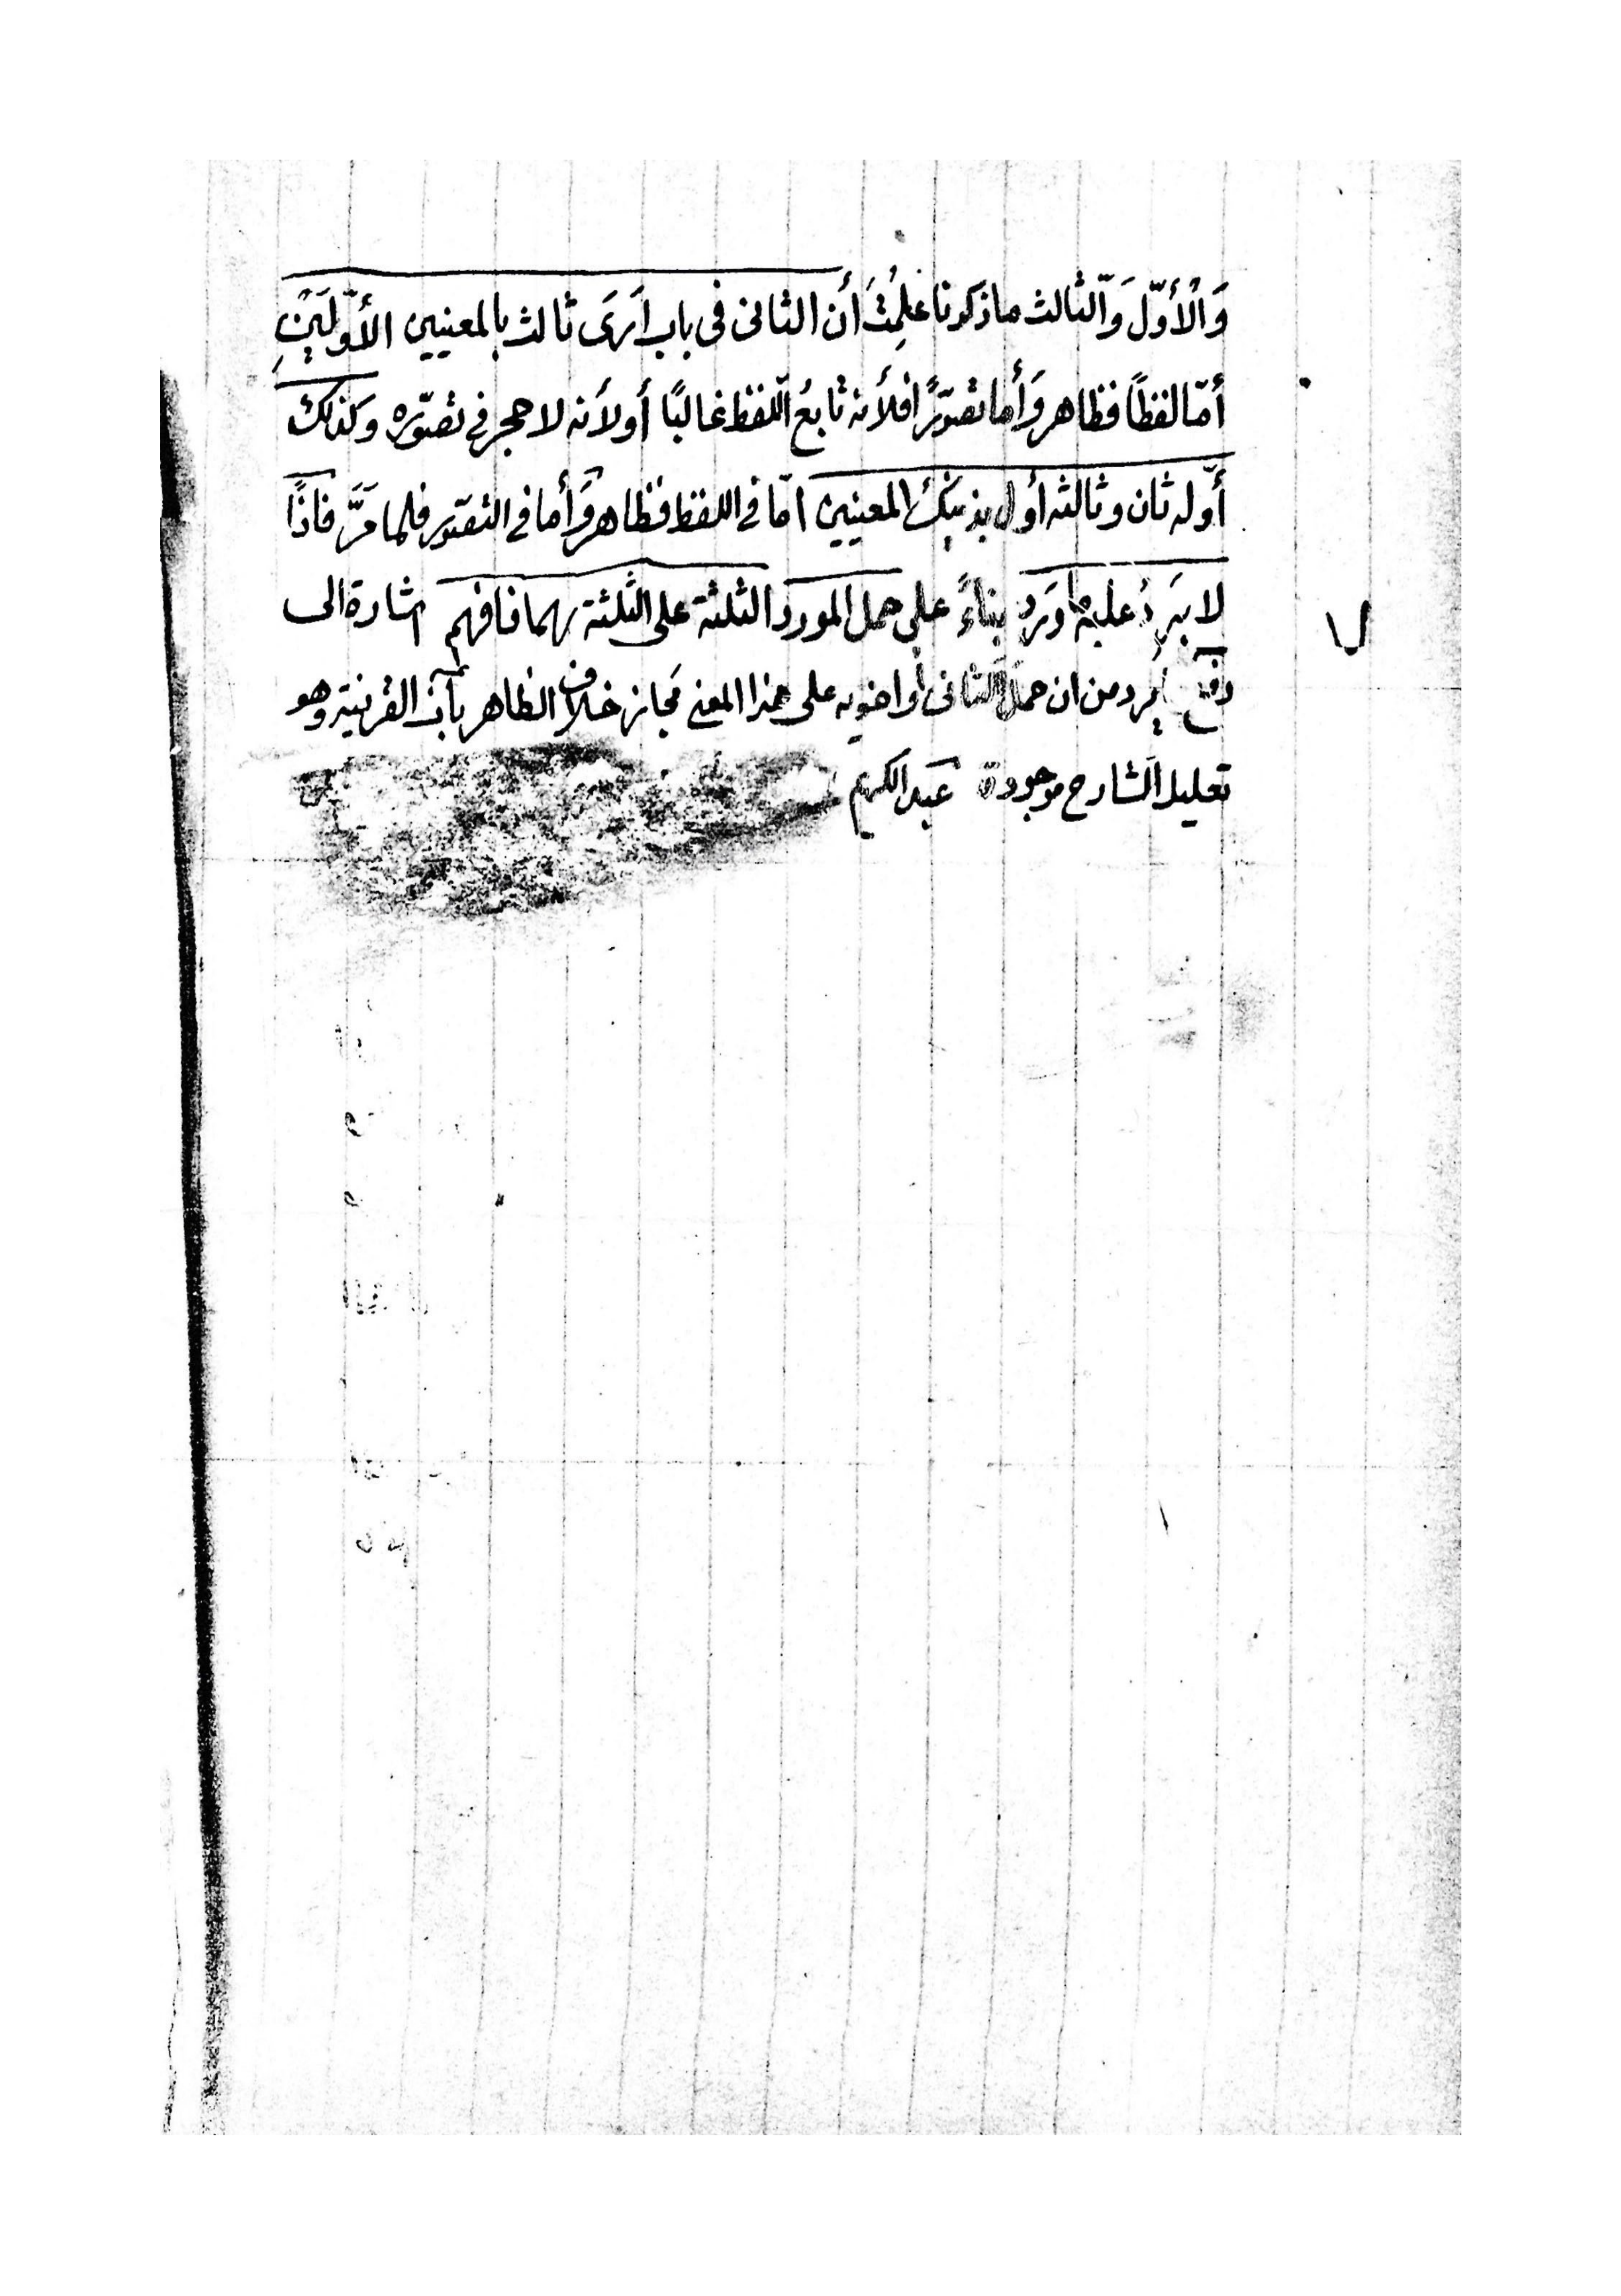 وَالْأَوّلَ وَالّثالث ماذكرنا علِمْتَ أن الثانى فى باب اَرَى ثالث بالمعنيين الأوّلَيْنِ
أمّا لفظًا فظاهر وَأما تصوّرًا فلأنه تابعُ اللّفظ غالبًا أو لأنه لا حجر فى تصوّره وكذلك
أوّله ثان وثالثه أول بذينك المعنيين امّا فى اللفظ فظاهر وَأما فى التصوّر فلما مَرَّ فاذًا
لا يَرِدُ عليه ما وَرد بناءً على حمل المورد الثلثة على الثلثة بهما فافهم اشارة الى
دفع يرد من ان حمل الثانى أو اخويه على هذا المعنى مجاز خلاف الظاهر بأن القرينة وهو
تعليل الشارح موجودة عبدالكريم